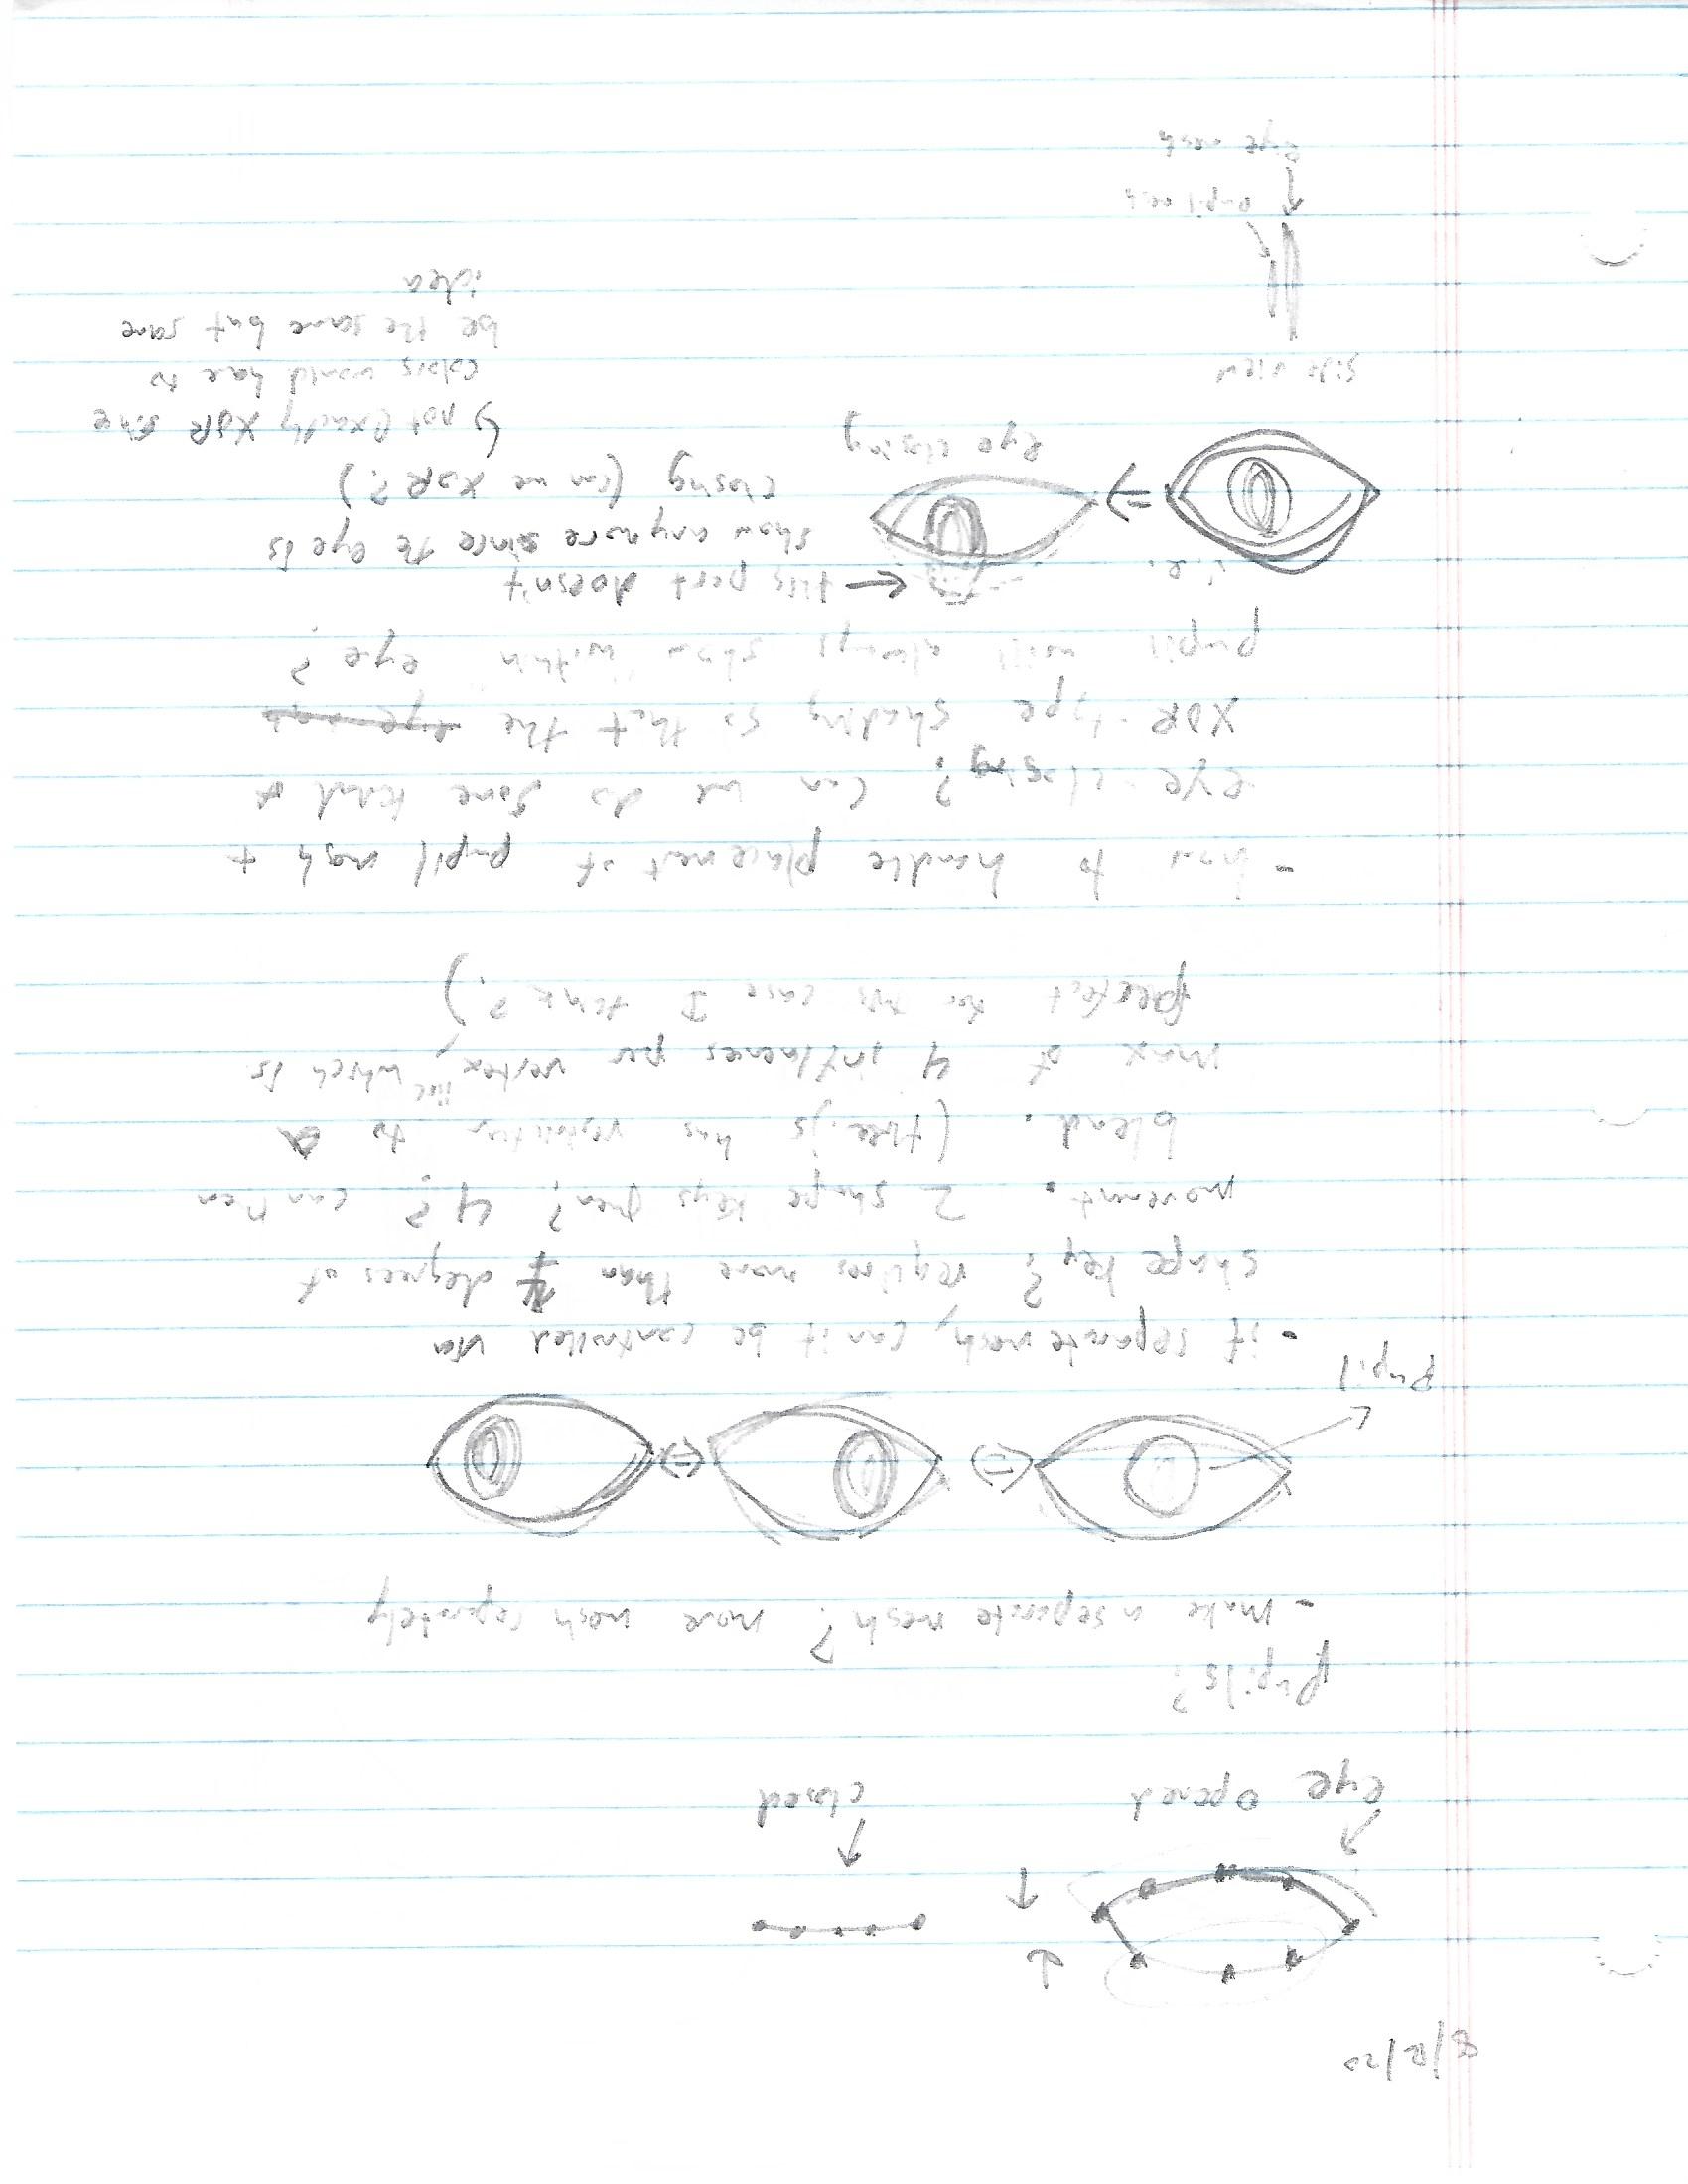 8/12/20
eye opened
closed
pupils?
- make a separate mesh? move mesh separately
pupil
- if separate mesh, can it be controlled via
shape key? requires more than 1 degrees of
movement. 2 shape keys then? 4? can then
blend. (three.js has restriction to a
max of 4 influences per vertex, which is
perfect for this case I think?)
- how to handle placement of pupil mesh +
eye-closing? Can we do some kind of
XOR-type shading so that the
pupil will always show "within" eye?
i.e.
← this part doesn't
show anymore since the eye is
closing (can we XOR?)
eye closing
↳ not exactly XOR since
colors would have to
be the same but same
idea
side view
pupil mesh
eye mesh